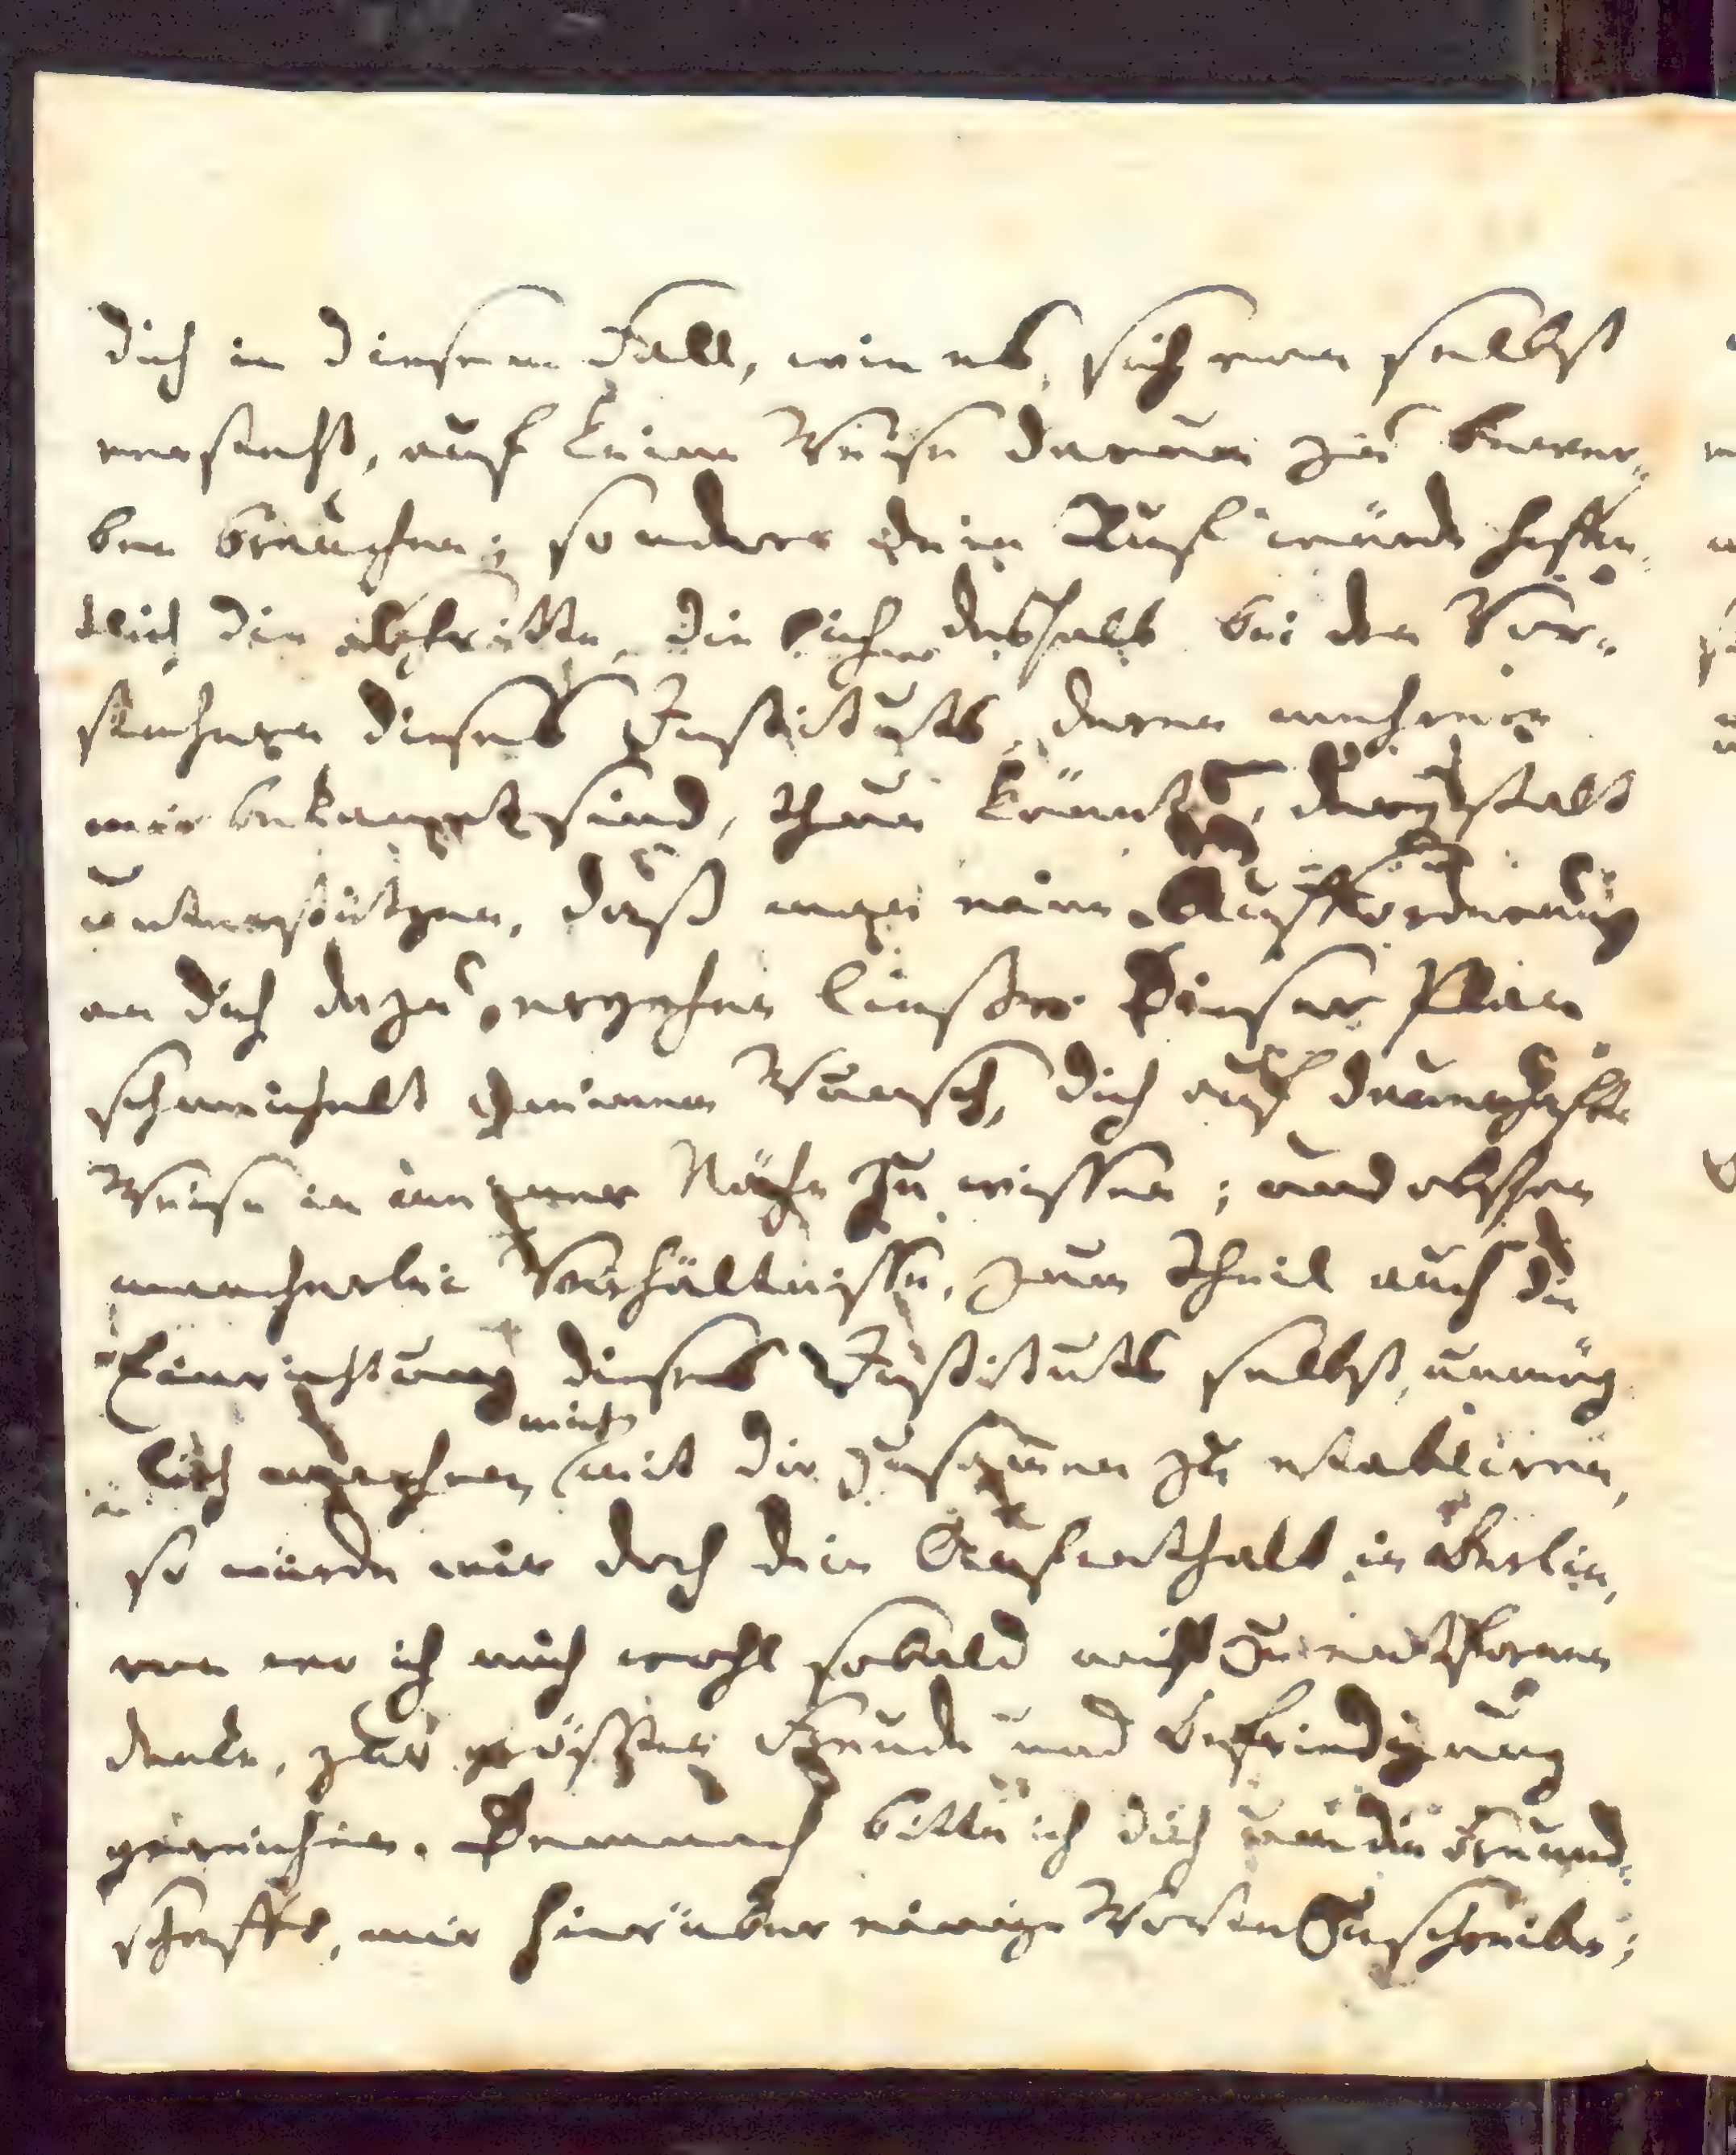 dich in diesem Fall, wie es, sich von selbst
versteht, auf keine Weise darum zu bewer-
ben brauchen; sondern dein Ruf würde hoffent-
lich die Schritte, die sich deshalb bei den Vor-
stehern dieses Instituts, deren mehrere
mir bekannt sind, thun könnte, dergestalt
unterstützen, daß man eine Aufforderung
an dich dazu ergehen ließe. Dieser Plan
schmeichelt meinem Wunsch, dich auf dauerhafte
Weise in meiner Nähe zu wissen; und obschon
mancherlei Verhältnisse, zum Theil auch die
Einrichtung dieses Instituts selbst, unmög-
lich machen, mich mit dir zusammen zu etablieren,
so würde mir doch dein Aufenthalt in Berlin,
von wo ich mich wohl sobald nicht zu entfernen
denke, zur größten Freude und Befriedigung
gereichen. Demnach bitte ich dich um die Freund-
schafft, mir hierüber einige Worte zu schreiben;